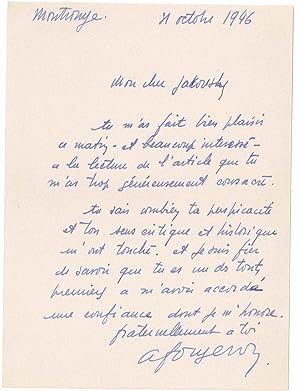 Montrouge. 21 octobre 1946
Mon cher Jakovsky
tu m'as fait bien plaisir
ce matin - et beaucoup interessé -
a la lecture de l'article que tu
m'as trop généreusement consacré.
tu sais combien ta perspicacité
et ton sens critique et historique
m'ont touché. et je suis fier
de savoir que tu es un des tout
premiers a m'avoir accordé
une confiance dont je m'honore.
fraternellement a toi
a fougeron